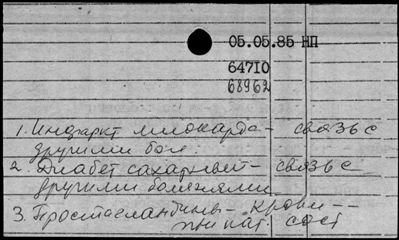 05.05.85 НП
64710
68962
1. Инфаркт миокарда - связь с
другими бол.
2. Диабет сахарный - связь с
другими болезнями
3. Простагландины - крови --
при пат. сост